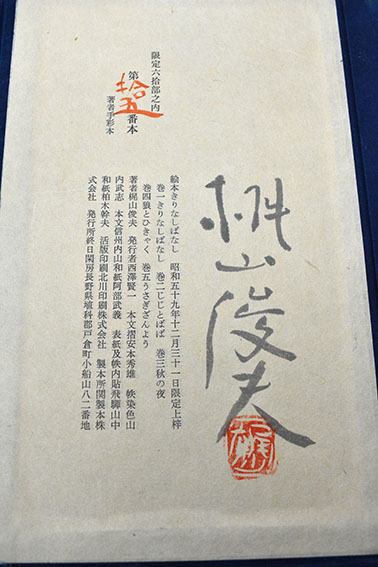 限定六拾部之内
第拾五番本
著者手彩本
梶山俊夫
絵本きりなしばなし 昭和五十九年十二月三十一日限定上梓
巻一きりなしばなし 巻二じじとばば 巻三秋の夜
巻四狼とひきゃく 巻五うさぎざんよう
著者梶山俊夫 発行者西澤賢一 本文摺安本秀雄 帙染色山
内武志 本文信州内山和紙阿部武義 表紙及帙内貼飛騨山中
和紙柏木幹夫 活版印刷北川印刷株式会社 製本所関製本株
式会社 発行所終日閑房長野県埴科郡戸倉町小船山八二番地